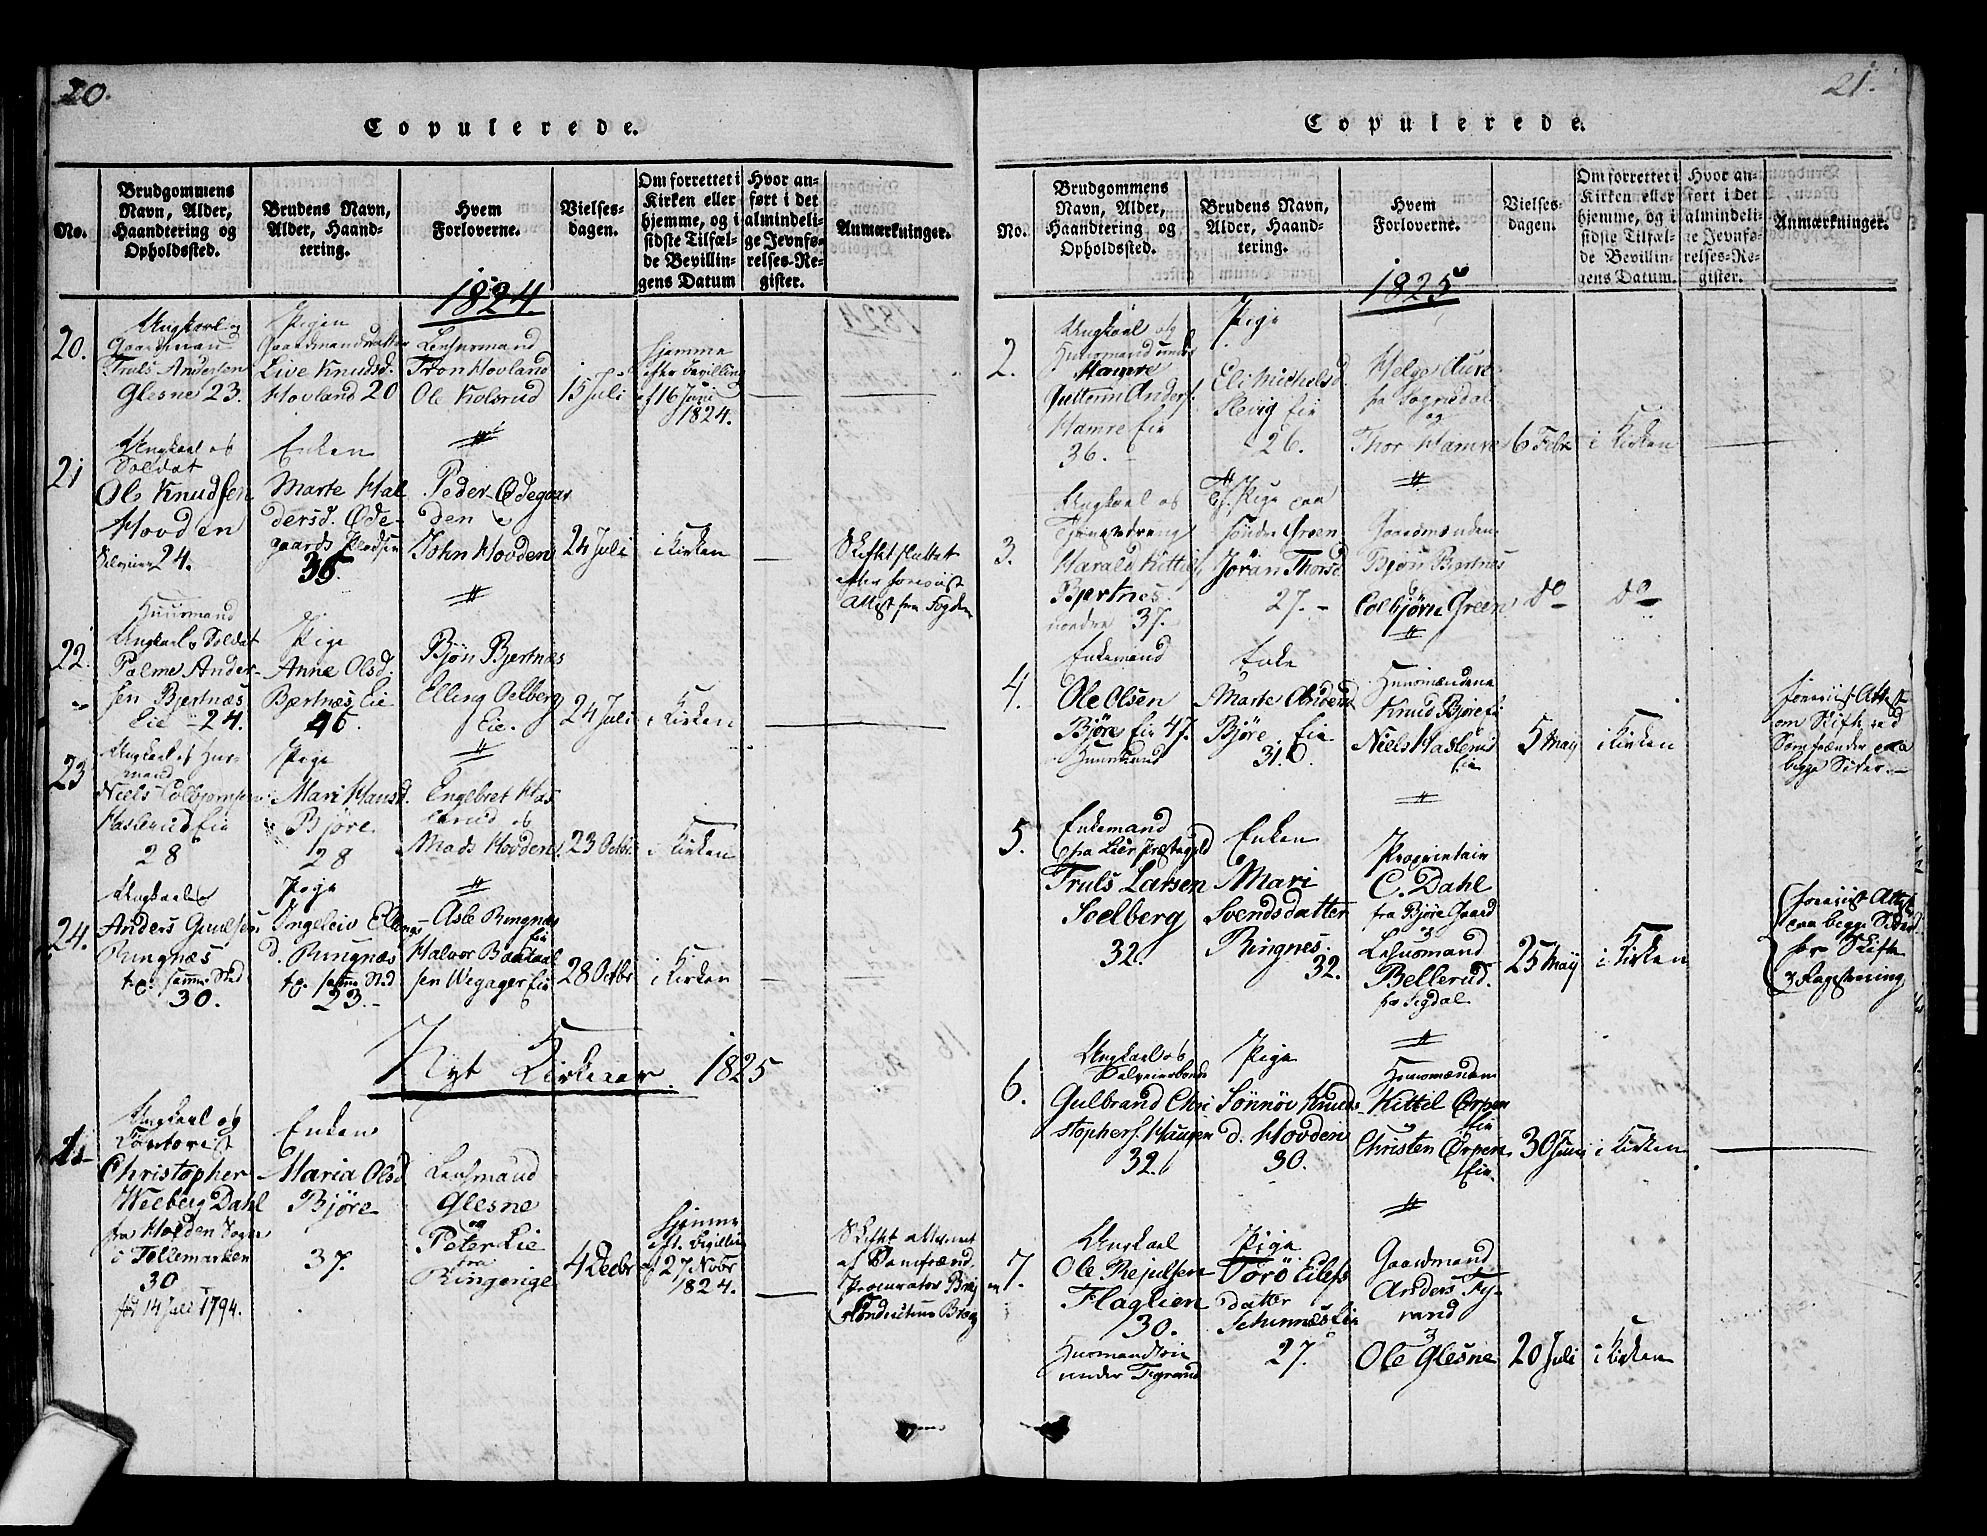 20.
Copulerede.
No.
Brudgommens
Navn, Alder,
Haandtering og
Opholdssted.
Brudens Navn,
Alder, Haand-
tering.
Hvem
Forloverne.
Vielses-
dagen.
Om forrettet i
Kirken eller
hjemme, og i
sidste Tilfæl-
de Bevillin-
gens Datum
Hvor an-
ført i det
almindeli-
ge Jevnfø-
relses-Re-
gister.
Anmærkninger.
1824.
20.
Ungkarl og
Gaardmand
Truls Andersen
Glesne 23.
Pigen
Gaardmandsdatter
Live Knudsd.
Hovland 20
Lensmand
Tron Hovland
Ole Kolsrud
15 Juli
hjemme
efter Bevilling
af 16 Juni
1824.
21
Ungkarl og
Soldat
Ole Knudsen
Hovden
24.
Enken
Marte Hal
dersd. Øde-
gaards
36.
Peder Ødegaar
den
John Hovden
24 Juli
i Kirken
Skifte sluttet
efter foreviist
Attest fra Fogden
22.
Huusmand
Ungkarl Soldat
Palme Ander-
sen Bjertnæs
Eie 24.
Pige
Anne Olsd.
Bjertnæs Eie
46.
Bjøn Bjertnæs
Elling Oelberg
Eie.
24 Juli
i Kirken
23
Ungkarl og Huus-
mand
Niels Colbjørnsen
Haslerud Eie
28
Pige
Mari Hansd.
Bjøre
28
Engebret Has
lerud og
Mads Hovden
23 Octbr.
i Kirken
24.
Ungkarl
Anders Gulsen
Ringnæs
samme Sted
30.
Pige
Ingeleiv Elling
d. Ringnæs
samme Sted
23.
Asle Ringnæs
Eie
Halvor
sen Wegager Eie
28 Octbr
i Kirken
Nyt Kirkeaar. 1825
1.
Ungkarl og
Christopher
Weeberg Dahl
fra Holden Sogn
i Tellemarken
30
født 14 Juli 1794.
Enken
Maria Olsd
Bjøre
37.
Lensmand
Glesne
og
Peter Lie
fra
Ringerige
4 Decbr
hjemme
af 27 Novbr
1824.
Skifte attesteret
af Samfrænd.
Procurator
21.
Copulerede.
No.
Brudgommens
Navn, Alder,
Haandtering og
Opholdssted.
Brudens Navn,
Alder, Haand-
tering.
Hvem
Forloverne.
Vielses-
dagen.
Om forrettet i
Kirken eller
hjemme, og i
sidste Tilfæl-
de Bevillin-
gens Datum.
Hvor an-
ført i det
almindeli-
ge Jevnfø-
relses-Re-
gister.
Anmærkninger.
1825
2.
Ungkarl og
Huusmand under
Hamre
Guttorm Anders.
Hamre Eie
36.
Pige
Eli Michelsd.
Slevig Eie
26.
Helge Aure
fra Sognedal
og
Thor Hamre
6 Febr
i Kirken
3.
Ungkarl og
Tjenestedreng
Harald Kittils.
Bjertnes
nordre 37.
Pige paa
søndre Green
Jøran Thorsd
27.
Gaardmændene
Bjøn Bertnes
Colbjørn Green
do
do
4.
Enkemand
Ole Olsen
Bjøre Eie 47.
Huusmand
Enke
Marte Andersd
Bjøre Eie
31.
Huusmændene
Knud Bjøre Eie
Niels Haslerud
Eie
5 May
i Kirken
foreviist Attest
om Skifte ved
Samfrænder paa
begge Sider.
5.
Enkemand
fra Lier Præstegjeld
Truls Larsen
Soelberg
32.
Enken
Mari
Svendsdatter
Ringnes.
32.
Proprietair
C. Dahl
fra Bjøre Gaard
Lensmand
Bellerud.
fra Sigdal
25 Maij
i Kirken
foreviist Attest
paa begge Sider
for Skifte
6.
Ungkarl og
Gulbrand Chri
stophers. Haugen
32.
Pige
Sønnøv Knuds-
d. Hovden
30.
Huusmændene
Kittel Ørpen
Eie
Christen Ørpen
Eie.
30 Juni
i Kirken
7.
Ungkarl
Ole Rejulsen
Flaglien
30.
Huusmand
under Tyrand
Pige
Torø Eilefs
datter
Schinnæs Eie
27.
Gaardmand
Anders Ty-
rand
Ole Glesne
20 Juli
i Kirken